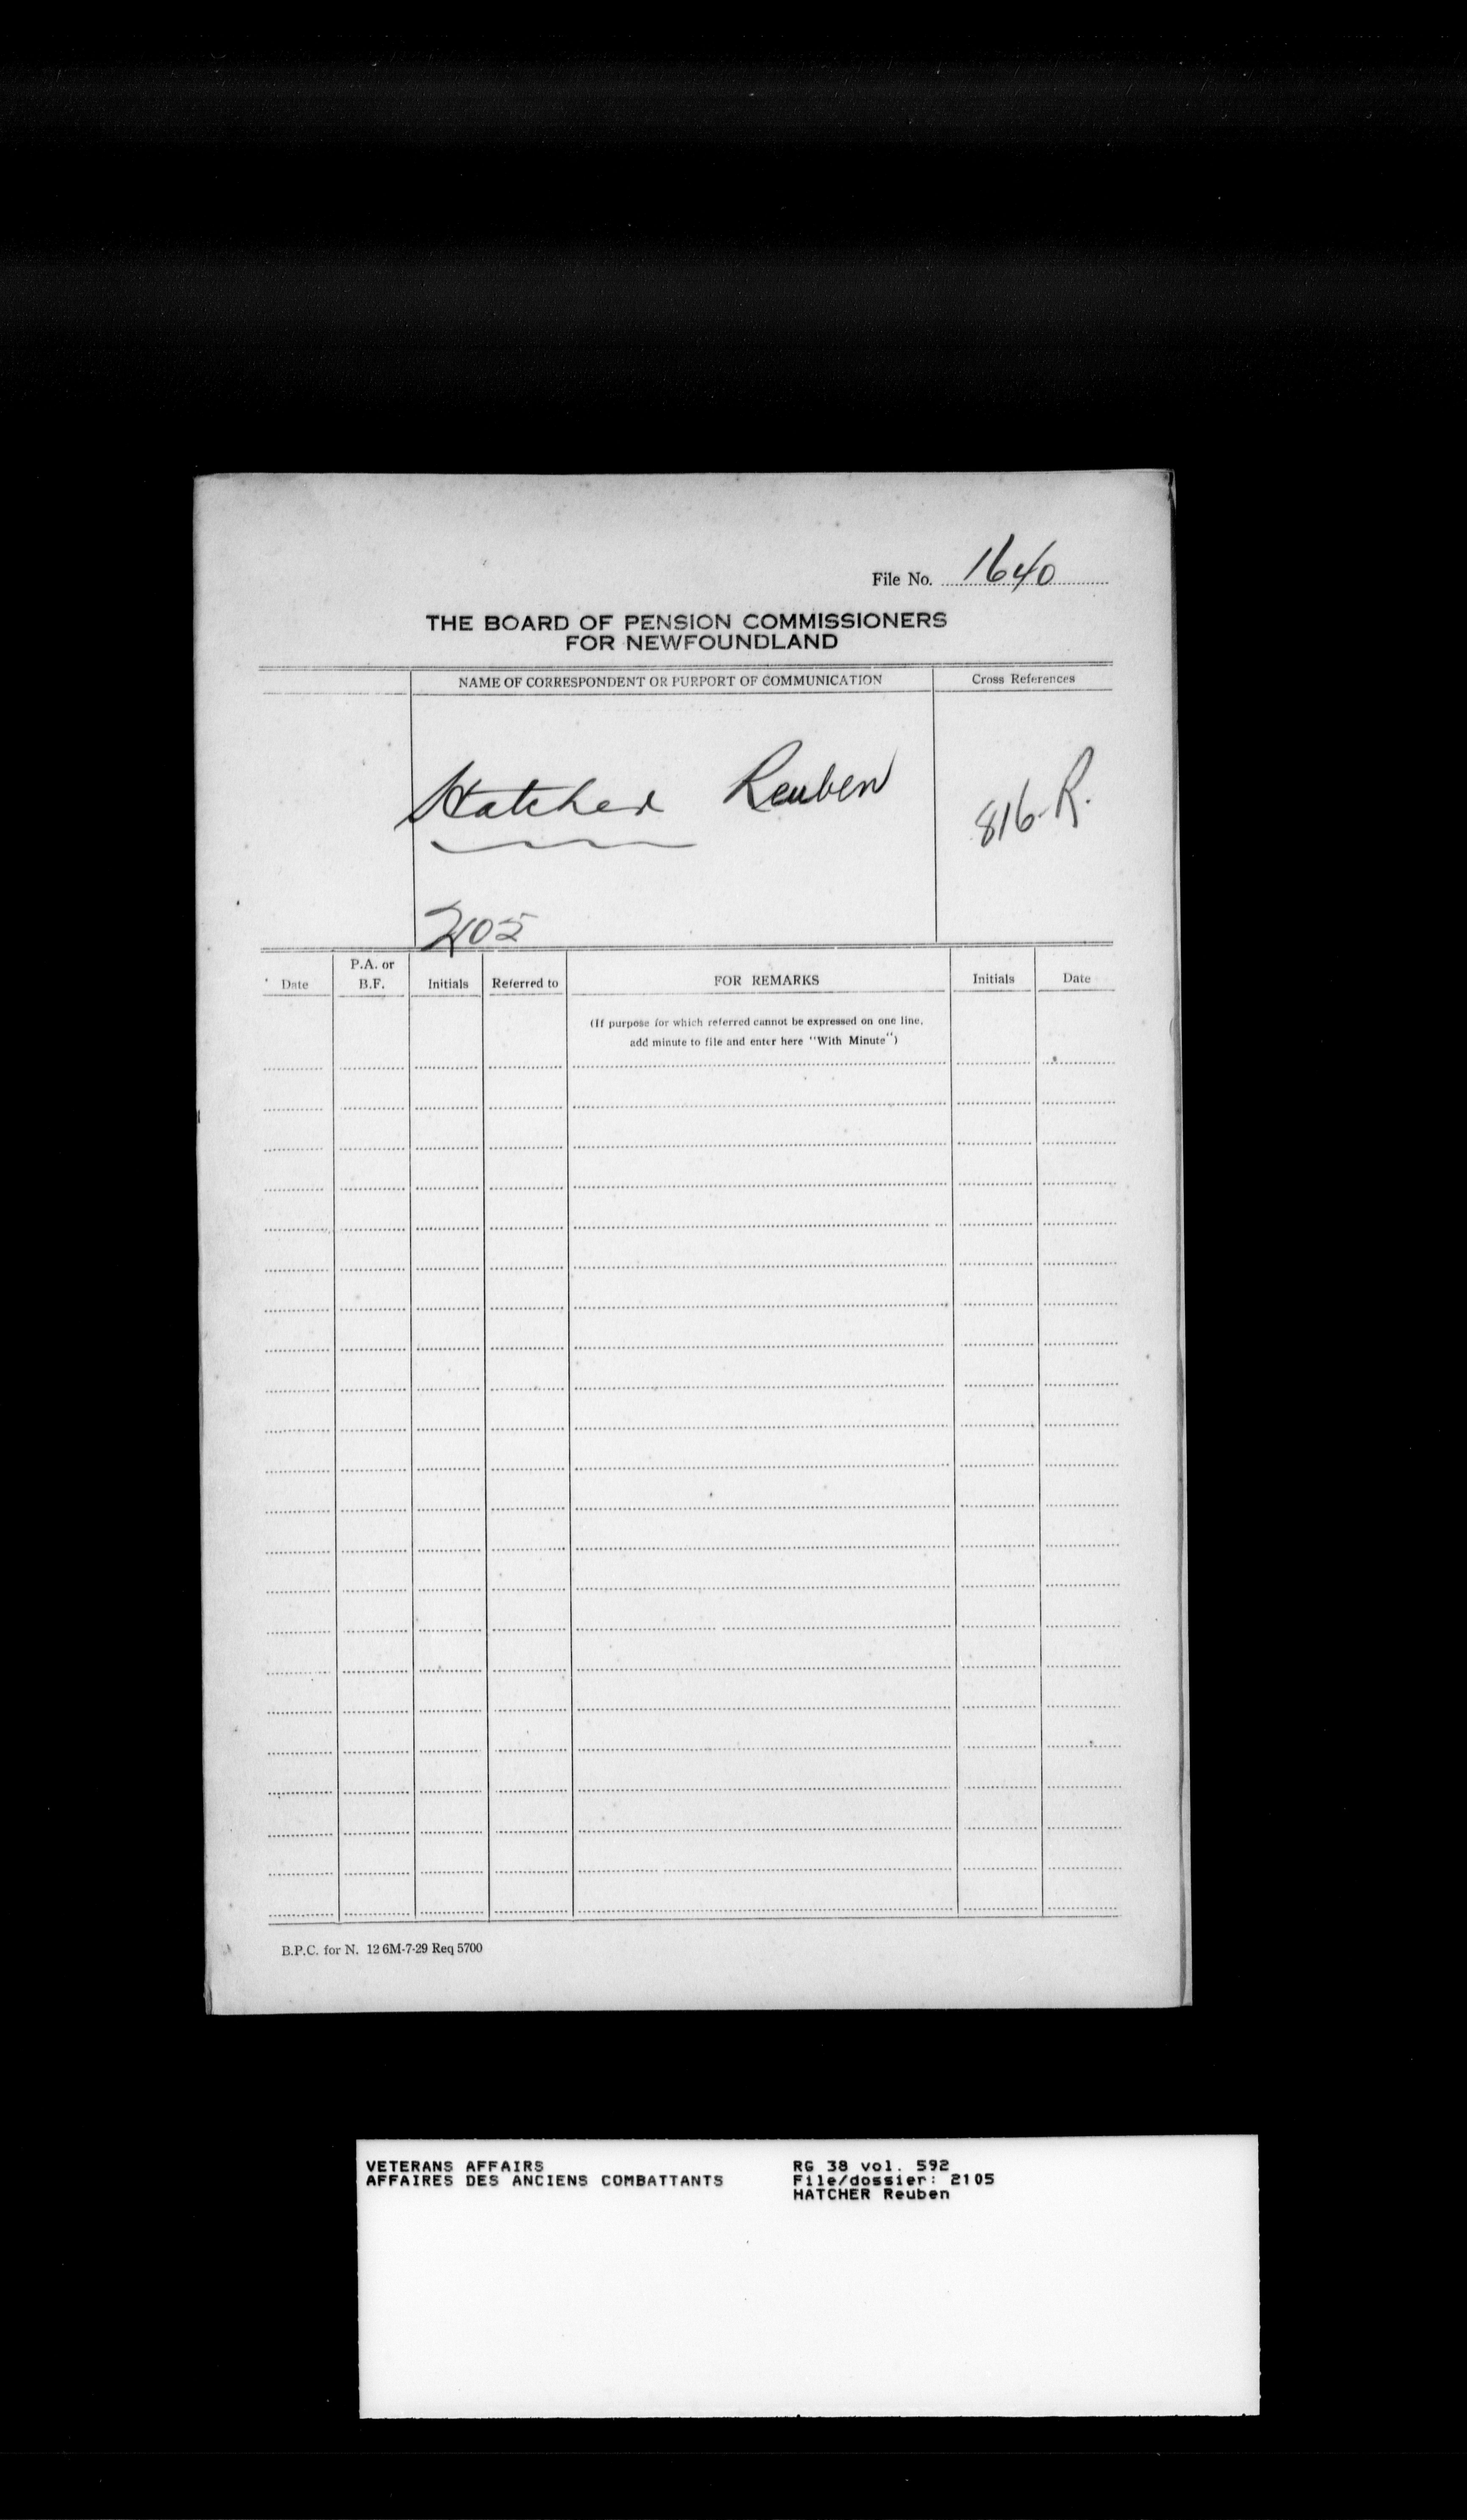 File No. 1640
THE BOARD OF PENSION COMMISSIONERS
FOR NEWFOUNDLAND
NAME OF CORRESPONDENT OR PURPORT OF COMMUNICATION Cross References
Hatcher Reuben 816-R.
2105
Date P.A. or B.F. Initials Referred to FOR REMARKS Initials Date
(If purpose for which referred cannot be expressed on one line,
add minute to file and enter here "With Minute")
B.P.C. for N. 12 6M-7-29 Req 5700
VETERANS AFFAIRS RG 38 vol. 592
AFFAIRES DES ANCIENS COMBATTANTS File/dossier: 2105
HATCHER Reuben